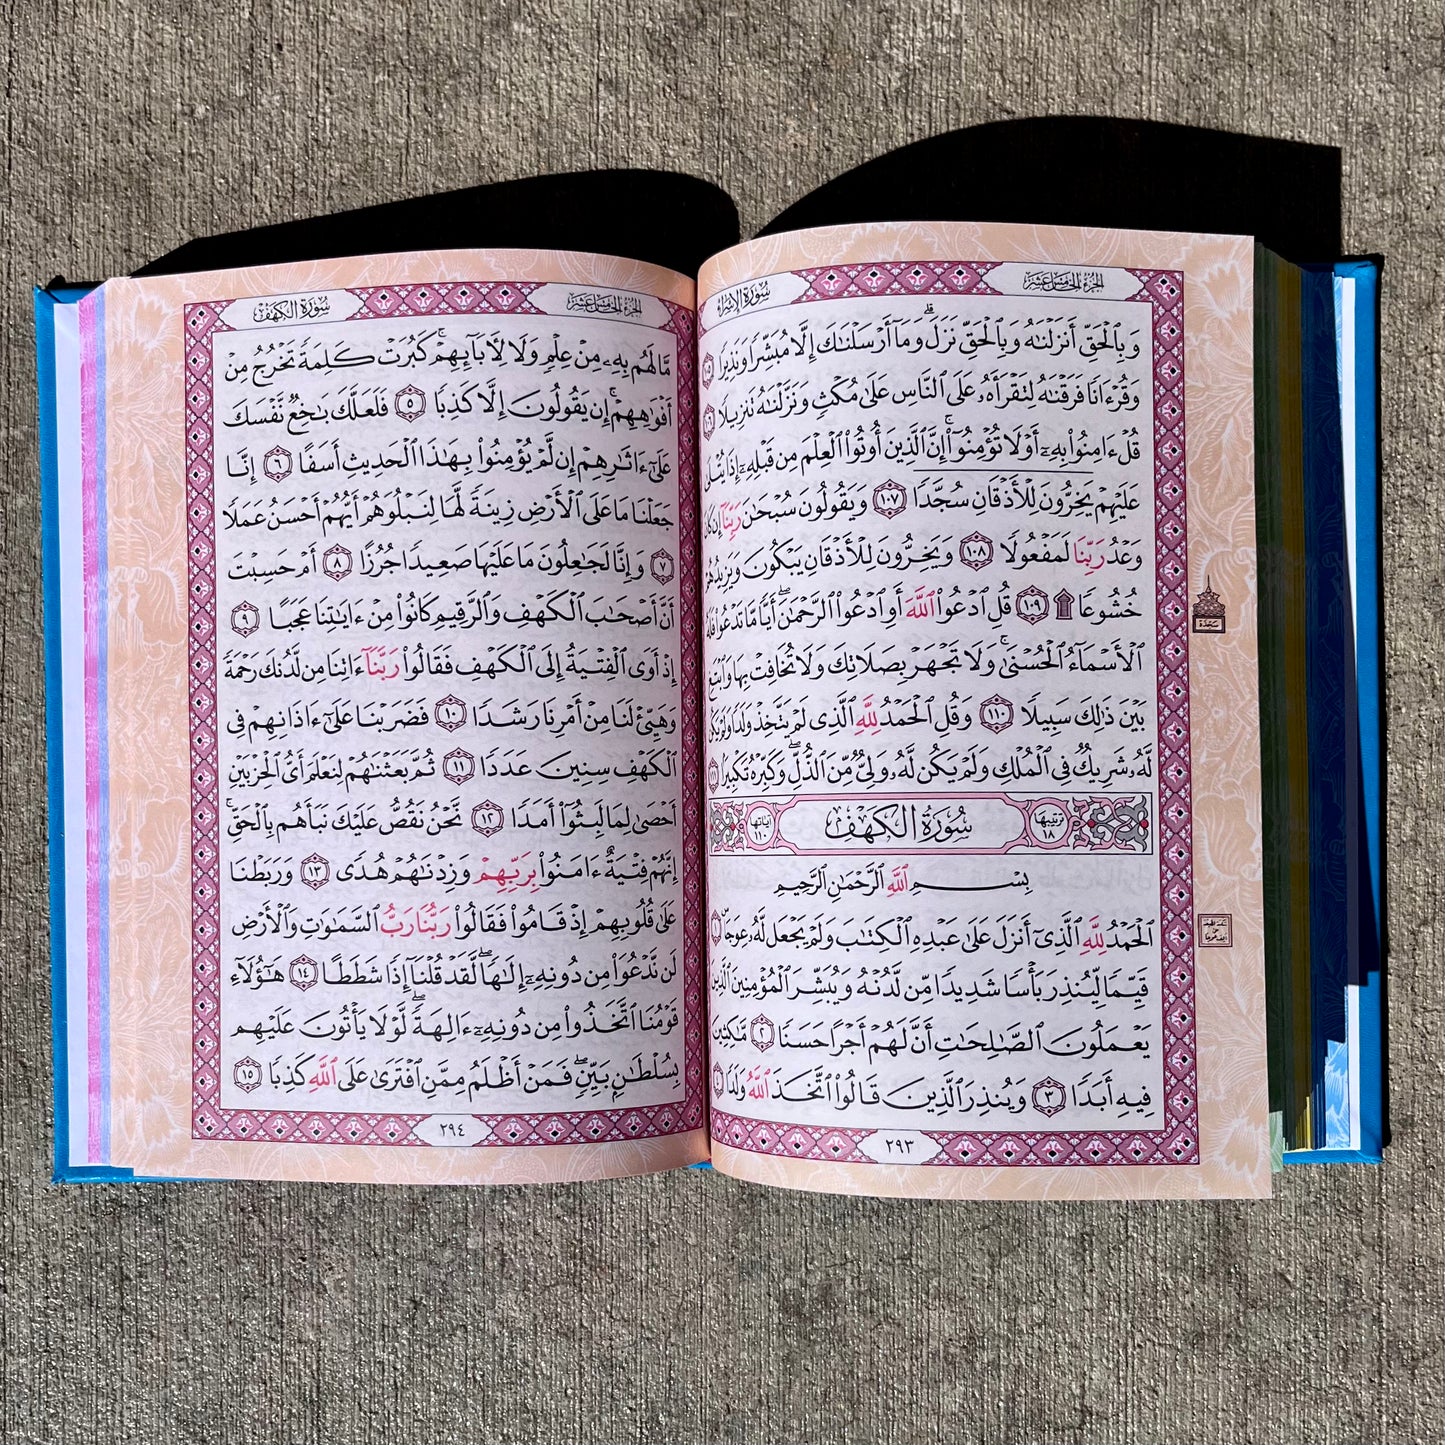 سُورَةُ الإِسْرَاء
الجُزْءُ الخَامِسَ عَشَرَ
وَبِٱلْحَقِّ أَنزَلْنَـٰهُ وَبِٱلْحَقِّ نَزَلَ ۗ وَمَآ أَرْسَلْنَـٰكَ إِلَّا مُبَشِّرًا وَنَذِيرًا ١٠٥
وَقُرْءَانًا فَرَقْنَـٰهُ لِتَقْرَأَهُۥ عَلَى ٱلنَّاسِ عَلَىٰ مُكْثٍ وَنَزَّلْنَـٰهُ تَنزِيلًا ١٠٦
قُلْ ءَامِنُوا۟ بِهِۦٓ أَوْ لَا تُؤْمِنُوٓا۟ ۚ إِنَّ ٱلَّذِينَ أُوتُوا۟ ٱلْعِلْمَ مِن قَبْلِهِۦٓ إِذَا يُتْلَىٰ
عَلَيْهِمْ يَخِرُّونَ لِلْأَذْقَانِ سُجَّدًا ١٠٧ وَيَقُولُونَ سُبْحَـٰنَ رَبِّنَآ إِن كَانَ
وَعْدُ رَبِّنَا لَمَفْعُولًا ١٠٨ وَيَخِرُّونَ لِلْأَذْقَانِ يَبْكُونَ وَيَزِيدُهُمْ
خُشُوعًا ۩ ١٠٩ قُلِ ٱدْعُوا۟ ٱللَّهَ أَوِ ٱدْعُوا۟ ٱلرَّحْمَـٰنَ ۖ أَيًّا مَّا تَدْعُوا۟ فَلَهُ
ٱلْأَسْمَآءُ ٱلْحُسْنَىٰ ۚ وَلَا تَجْهَرْ بِصَلَاتِكَ وَلَا تُخَافِتْ بِهَا وَٱبْتَغِ
بَيْنَ ذَٰلِكَ سَبِيلًا ١١٠ وَقُلِ ٱلْحَمْدُ لِلَّهِ ٱلَّذِى لَمْ يَتَّخِذْ وَلَدًا وَلَمْ يَكُن
لَّهُۥ شَرِيكٌ فِى ٱلْمُلْكِ وَلَمْ يَكُن لَّهُۥ وَلِىٌّ مِّنَ ٱلذُّلِّ ۖ وَكَبِّرْهُ تَكْبِيرًۢا ١١١
ترتيبها ١٨ سُورَةُ الكَهْفِ آياتها ١١٠
بِسْمِ ٱللَّهِ ٱلرَّحْمَـٰنِ ٱلرَّحِيمِ
ٱلْحَمْدُ لِلَّهِ ٱلَّذِىٓ أَنزَلَ عَلَىٰ عَبْدِهِ ٱلْكِتَـٰبَ وَلَمْ يَجْعَل لَّهُۥ عِوَجَا ۜ ١
قَيِّمًا لِّيُنذِرَ بَأْسًا شَدِيدًا مِّن لَّدُنْهُ وَيُبَشِّرَ ٱلْمُؤْمِنِينَ ٱلَّذِينَ
يَعْمَلُونَ ٱلصَّـٰلِحَـٰتِ أَنَّ لَهُمْ أَجْرًا حَسَنًا ٢ مَّـٰكِثِينَ
فِيهِ أَبَدًا ٣ وَيُنذِرَ ٱلَّذِينَ قَالُوا۟ ٱتَّخَذَ ٱللَّهُ وَلَدًا ٤
٢٩٣
سَجْدَة
سُورَةُ الكَهْفِ
الجُزْءُ الخَامِسَ عَشَرَ
مَّا لَهُم بِهِۦ مِنْ عِلْمٍ وَلَا لِـَٔابَآئِهِمْ ۚ كَبُرَتْ كَلِمَةً تَخْرُجُ مِنْ
أَفْوَٰهِهِمْ ۚ إِن يَقُولُونَ إِلَّا كَذِبًا ٥ فَلَعَلَّكَ بَـٰخِعٌ نَّفْسَكَ
عَلَىٰٓ ءَاثَـٰرِهِمْ إِن لَّمْ يُؤْمِنُوا۟ بِهَـٰذَا ٱلْحَدِيثِ أَسَفًا ٦ إِنَّا
جَعَلْنَا مَا عَلَى ٱلْأَرْضِ زِينَةً لَّهَا لِنَبْلُوَهُمْ أَيُّهُمْ أَحْسَنُ عَمَلًا
٧ وَإِنَّا لَجَـٰعِلُونَ مَا عَلَيْهَا صَعِيدًا جُرُزًا ٨ أَمْ حَسِبْتَ
أَنَّ أَصْحَـٰبَ ٱلْكَهْفِ وَٱلرَّقِيمِ كَانُوا۟ مِنْ ءَايَـٰتِنَا عَجَبًا ٩
إِذْ أَوَى ٱلْفِتْيَةُ إِلَى ٱلْكَهْفِ فَقَالُوا۟ رَبَّنَآ ءَاتِنَا مِن لَّدُنكَ رَحْمَةً
وَهَيِّئْ لَنَا مِنْ أَمْرِنَا رَشَدًا ١٠ فَضَرَبْنَا عَلَىٰٓ ءَاذَانِهِمْ فِى
ٱلْكَهْفِ سِنِينَ عَدَدًا ١١ ثُمَّ بَعَثْنَـٰهُمْ لِنَعْلَمَ أَىُّ ٱلْحِزْبَيْنِ
أَحْصَىٰ لِمَا لَبِثُوٓا۟ أَمَدًا ١٢ نَّحْنُ نَقُصُّ عَلَيْكَ نَبَأَهُم بِٱلْحَقِّ ۚ
إِنَّهُمْ فِتْيَةٌ ءَامَنُوا۟ بِرَبِّهِمْ وَزِدْنَـٰهُمْ هُدًى ١٣ وَرَبَطْنَا
عَلَىٰ قُلُوبِهِمْ إِذْ قَامُوا۟ فَقَالُوا۟ رَبُّنَا رَبُّ ٱلسَّمَـٰوَٰتِ وَٱلْأَرْضِ
لَن نَّدْعُوَا۟ مِن دُونِهِۦٓ إِلَـٰهًا ۖ لَّقَدْ قُلْنَآ إِذًا شَطَطًا ١٤ هَـٰٓؤُلَآءِ
قَوْمُنَا ٱتَّخَذُوا۟ مِن دُونِهِۦٓ ءَالِهَةً ۖ لَّوْلَا يَأْتُونَ عَلَيْهِم
بِسُلْطَـٰنٍۭ بَيِّنٍ ۖ فَمَنْ أَظْلَمُ مِمَّنِ ٱفْتَرَىٰ عَلَى ٱللَّهِ كَذِبًا ١٥
٢٩٤